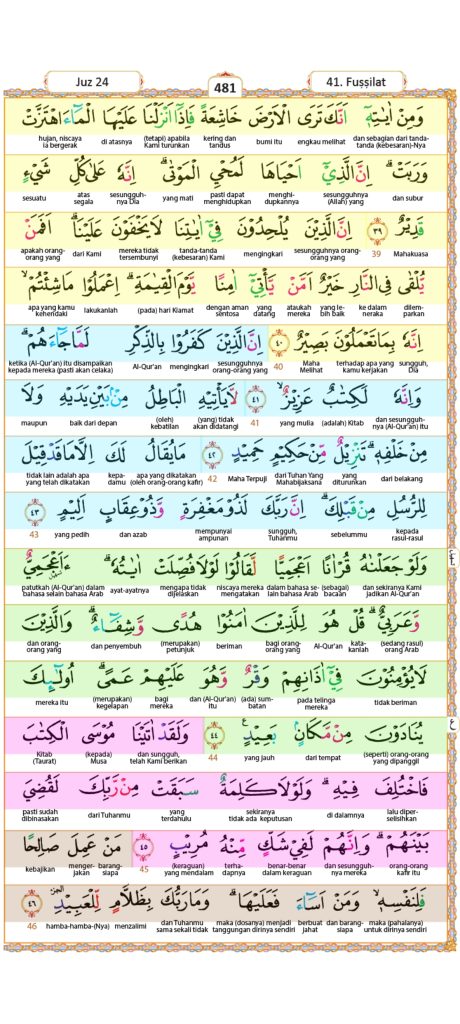 Juz 24
481
41. Fuṣṣilat
وَمِنْ اٰيٰتِهٖٓ اَنَّكَ تَرَى الْاَرْضَ خَاشِعَةً فَاِذَآ اَنْزَلْنَا عَلَيْهَا الْمَاۤءَ اهْتَزَّتْ
dan sebagian dari tanda-tanda (kebesaran)-Nya engkau melihat bumi itu kering dan tandus (tetapi) apabila Kami turunkan di atasnya hujan, niscaya ia bergerak
وَرَبَتْۗ اِنَّ الَّذِيْٓ اَحْيَاهَا لَمُحْيِ الْمَوْتٰىۗ اِنَّهٗ عَلٰى كُلِّ شَيْءٍ
dan subur sesungguhnya (Allah) yang menghi-dupkannya pasti dapat menghidupkan yang mati sesungguh-nya Dia atas segala sesuatu
قَدِيْرٌ ٣٩ اِنَّ الَّذِيْنَ يُلْحِدُوْنَ فِيْٓ اٰيٰتِنَا لَا يَخْفَوْنَ عَلَيْنَاۗ اَفَمَنْ
Mahakuasa 39 sesungguhnya orang-orang yang mengingkari tanda-tanda (kebesaran) Kami mereka tidak tersembunyi dari Kami apakah orang-orang yang
يُّلْقٰى فِى النَّارِ خَيْرٌ اَمْ مَّنْ يَّأْتِيْٓ اٰمِنًا يَّوْمَ الْقِيٰمَةِۗ اِعْمَلُوْا مَا شِئْتُمْۙ
dilem-parkan ke dalam neraka yang le-bih baik ataukah mereka yang datang dengan aman sentosa (pada) hari Kiamat lakukanlah apa yang kamu kehendaki
اِنَّهٗ بِمَا تَعْمَلُوْنَ بَصِيْرٌ ٤٠ اِنَّ الَّذِيْنَ كَفَرُوْا بِالذِّكْرِ لَمَّا جَاۤءَهُمْۗ
sungguh, Dia terhadap apa yang kamu kerjakan Maha Melihat 40 sesungguhnya orang-orang yang mengingkari Al-Qur'an ketika (Al-Qur'an) itu disampaikan kepada mereka (pasti akan celaka)
وَاِنَّهٗ لَكِتٰبٌ عَزِيْزٌۙ ٤١ لَّا يَأْتِيْهِ الْبَاطِلُ مِنْۢ بَيْنِ يَدَيْهِ وَلَا
dan sesungguh-nya (Al-Qur'an) itu (adalah) Kitab yang mulia 41 (yang) tidak akan didatangi (oleh) kebatilan baik dari depan maupun
مِنْ خَلْفِهٖۗ تَنْزِيْلٌ مِّنْ حَكِيْمٍ حَمِيْدٍ ٤٢ مَا يُقَالُ لَكَ اِلَّا مَا قَدْ قِيْلَ
dari belakang yang diturunkan dari Tuhan Yang Mahabijaksana Maha Terpuji 42 apa yang dikatakan (oleh orang-orang kafir) kepa-damu tidak lain adalah apa yang telah dikatakan
لِلرُّسُلِ مِنْ قَبْلِكَۗ اِنَّ رَبَّكَ لَذُوْ مَغْفِرَةٍ وَّذُوْ عِقَابٍ اَلِيْمٍ ٤٣
kepada rasul-rasul sebelummu sungguh, Tuhanmu mempunyai ampunan dan azab yang pedih 43
وَلَوْ جَعَلْنٰهُ قُرْاٰنًا اَعْجَمِيًّا لَّقَالُوْا لَوْلَا فُصِّلَتْ اٰيٰتُهٗۗ ءَاَعْجَمِيٌّ
dan sekiranya Kami jadikan Al-Qur'an (sebagai) bacaan dalam bahasa se-lain bahasa Arab niscaya mereka mengatakan mengapa tidak dijelaskan ayat-ayatnya patutkah (Al-Qur'an) dalam bahasa selain bahasa Arab
وَّعَرَبِيٌّۗ قُلْ هُوَ لِلَّذِيْنَ اٰمَنُوْا هُدًى وَّشِفَاۤءٌۗ وَالَّذِيْنَ
(sedang rasul) orang Arab kata-kanlah Al-Qur'an bagi orang-orang yang beriman (merupakan) petunjuk dan penyembuh dan orang-orang yang
لَا يُؤْمِنُوْنَ فِيْٓ اٰذَانِهِمْ وَقْرٌ وَّهُوَ عَلَيْهِمْ عَمًىۗ اُولٰۤىِٕكَ
tidak beriman pada telinga mereka (ada) sum-batan dan (Al-Qur'an) itu bagi mereka (merupakan) kegelapan mereka itu
يُنَادَوْنَ مِنْ مَّكَانٍۢ بَعِيْدٍ ٤٤ ع وَلَقَدْ اٰتَيْنَا مُوْسَى الْكِتٰبَ
(seperti) orang-orang yang dipanggil dari tempat yang jauh 44 dan sungguh, telah Kami berikan (kepada) Musa Kitab (Taurat)
فَاخْتُلِفَ فِيْهِۗ وَلَوْلَا كَلِمَةٌ سَبَقَتْ مِنْ رَّبِّكَ لَقُضِيَ
lalu diper-selisihkan di dalamnya sekiranya tidak ada keputusan yang terdahulu dari Tuhanmu pasti sudah dibinasakan
بَيْنَهُمْۗ وَاِنَّهُمْ لَفِيْ شَكٍّ مِّنْهُ مُرِيْبٍ ٤٥ مَنْ عَمِلَ صَالِحًا
orang-orang kafir itu dan sesungguh-nya mereka benar-benar dalam keraguan terha-dapnya (keraguan) yang mendalam 45 barang-siapa menger-jakan kebajikan
فَلِنَفْسِهٖ ۙوَمَنْ اَسَاۤءَ فَعَلَيْهَاۗ وَمَا رَبُّكَ بِظَلَّامٍ لِّلْعَبِيْدِ ٤٦
maka (pahalanya) untuk dirinya sendiri dan barang-siapa berbuat jahat maka (dosanya) menjadi tanggungan dirinya sendiri dan Tuhanmu sama sekali tidak menzalimi hamba-hamba-(Nya) 46